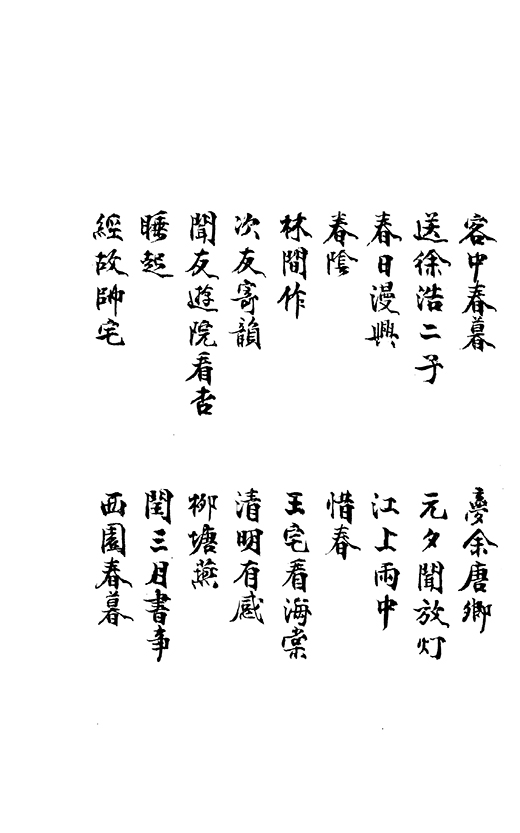 客中春暮
夢余唐卿
送徐浩二子
元夕聞放灯
春日漫興
江上雨中
春陰
惜春
林間作
王宅看海棠
次友寄韻
清明有感
聞友遊院看杏
柳塘燕
睡起
閏三月書事
經故帥宅
西園春暮